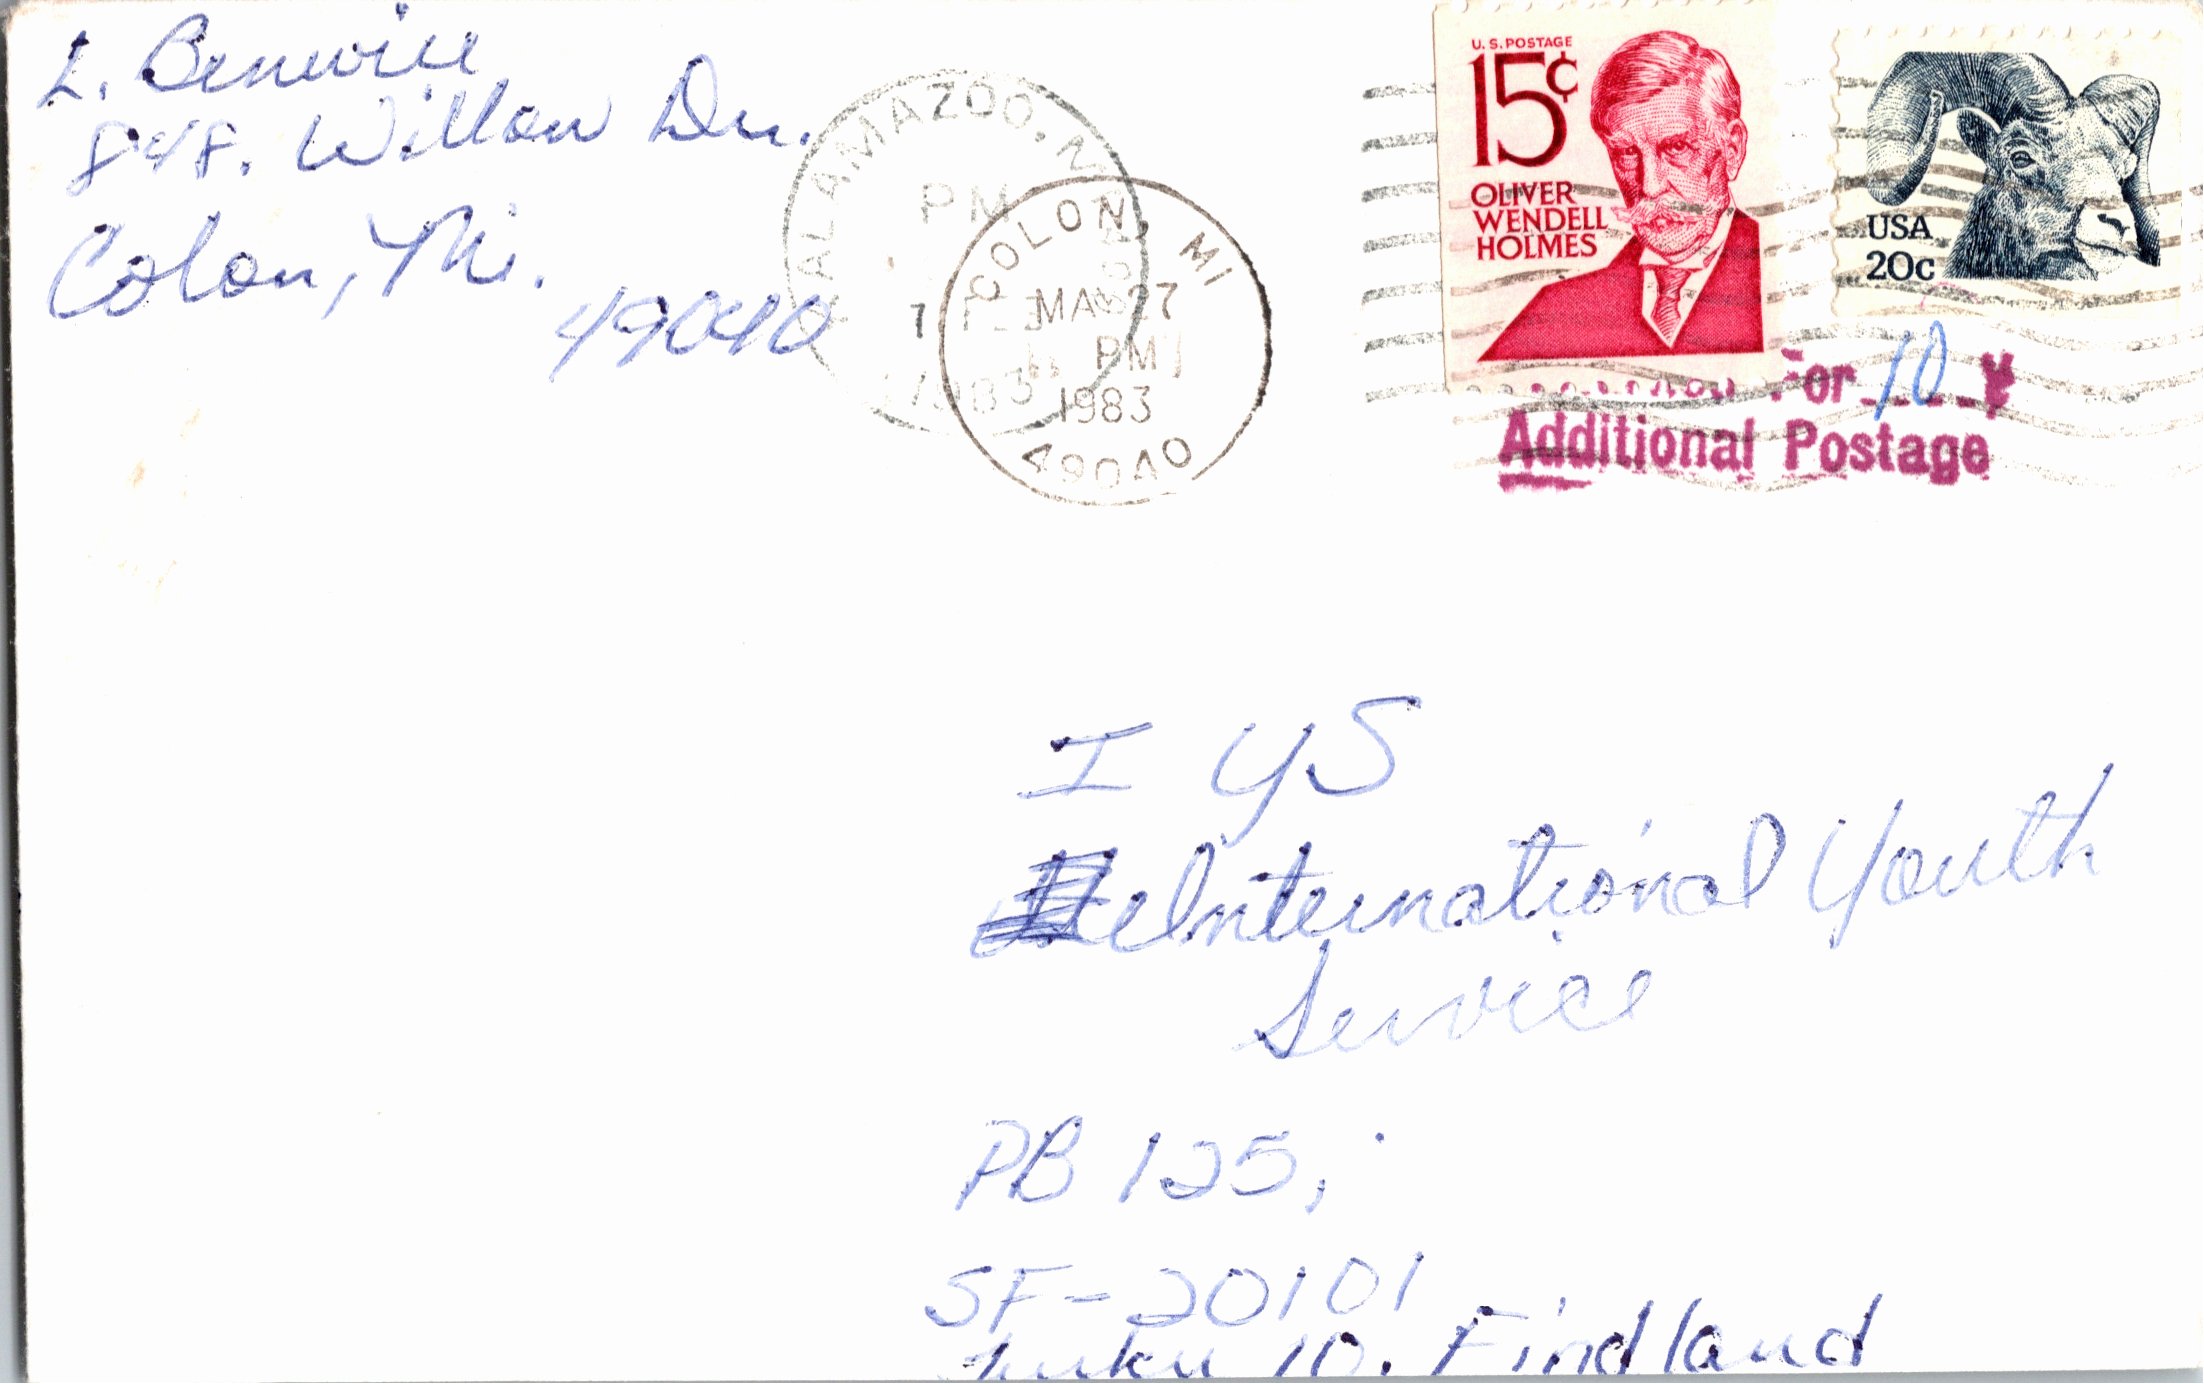 L. Benwill
848. Willow Dr.
Colon, Mi.
49040
KALAMAZOO, MI 490
PM
7 FEB
1983
COLON, MI
MAR 27
PM
1983
49040
U.S. POSTAGE
15¢
OLIVER
WENDELL
HOLMES
USA
20c
For 10
Additional Postage
I YS
International Youth
Service
PB 125,
SF-20101
Turku 10. Findland